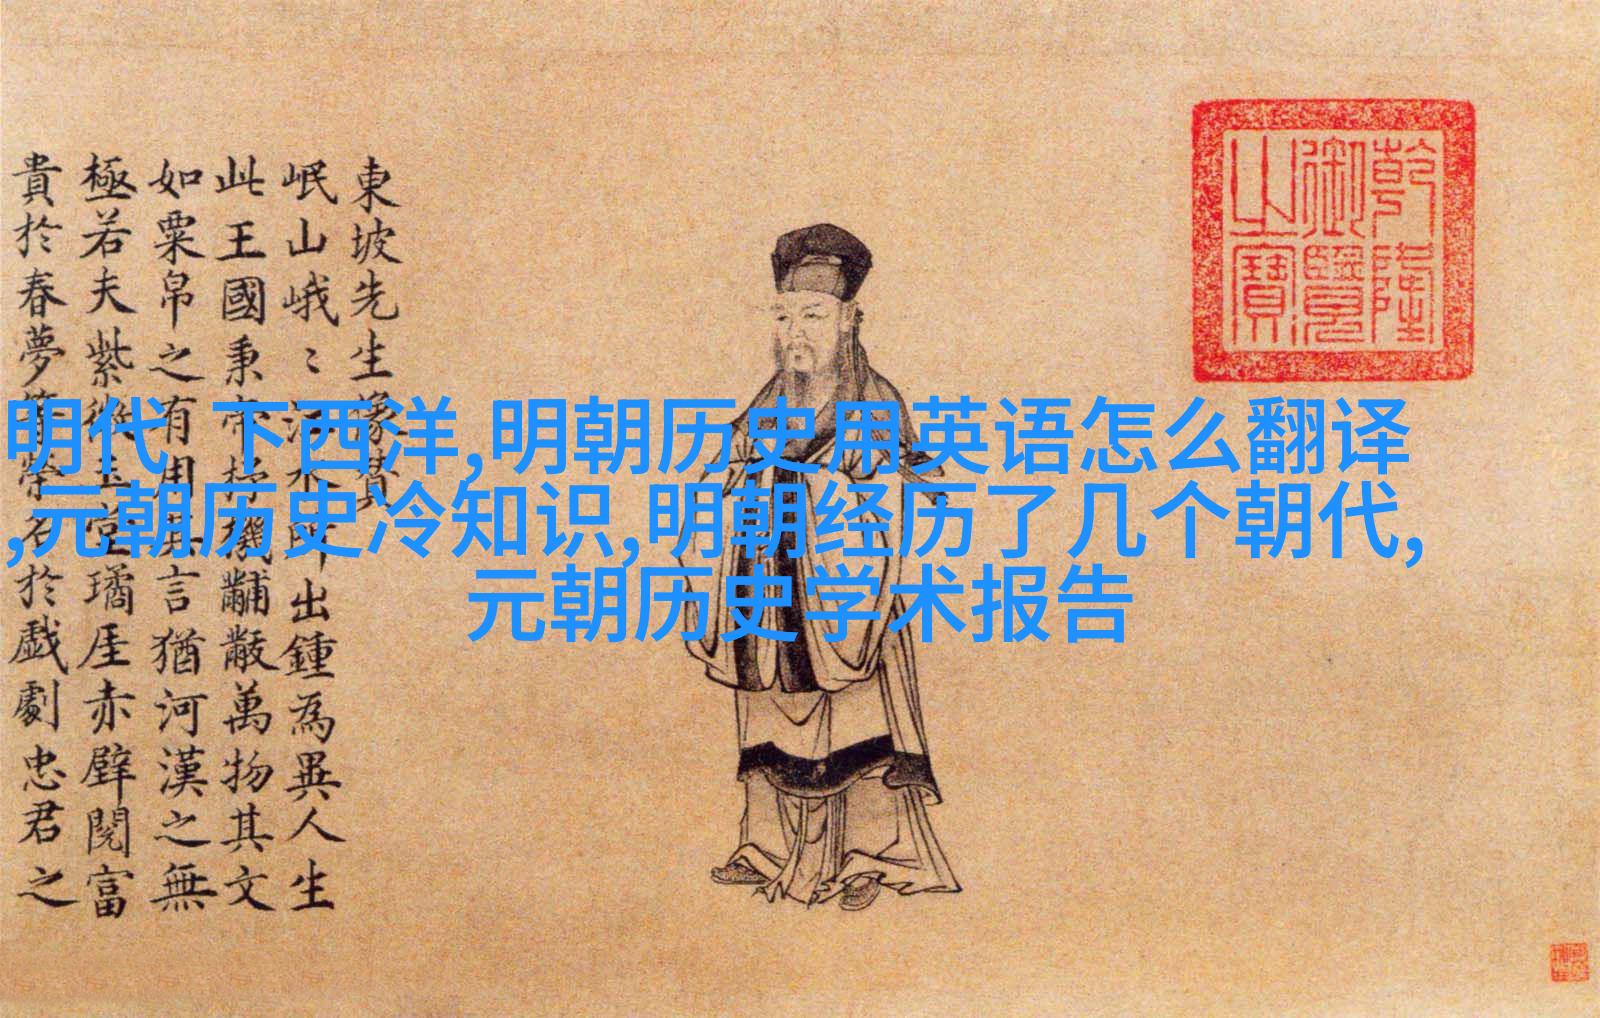 東坡先生像贊
岷山峨〻江水所出鍾為異人生
此王國秉帝杼機黼黻萬物其文
如粟帛之有用其言猶河漢之無
極若夫紫微玉堂璚厓赤壁閱富
貴於春夢等榮名於戲劇忠君之
乾隆
御覽
之寶
明代 下西洋,明朝历史用英语怎么翻译
,元朝历史冷知识,明朝经历了几个朝代,
元朝历史学术报告